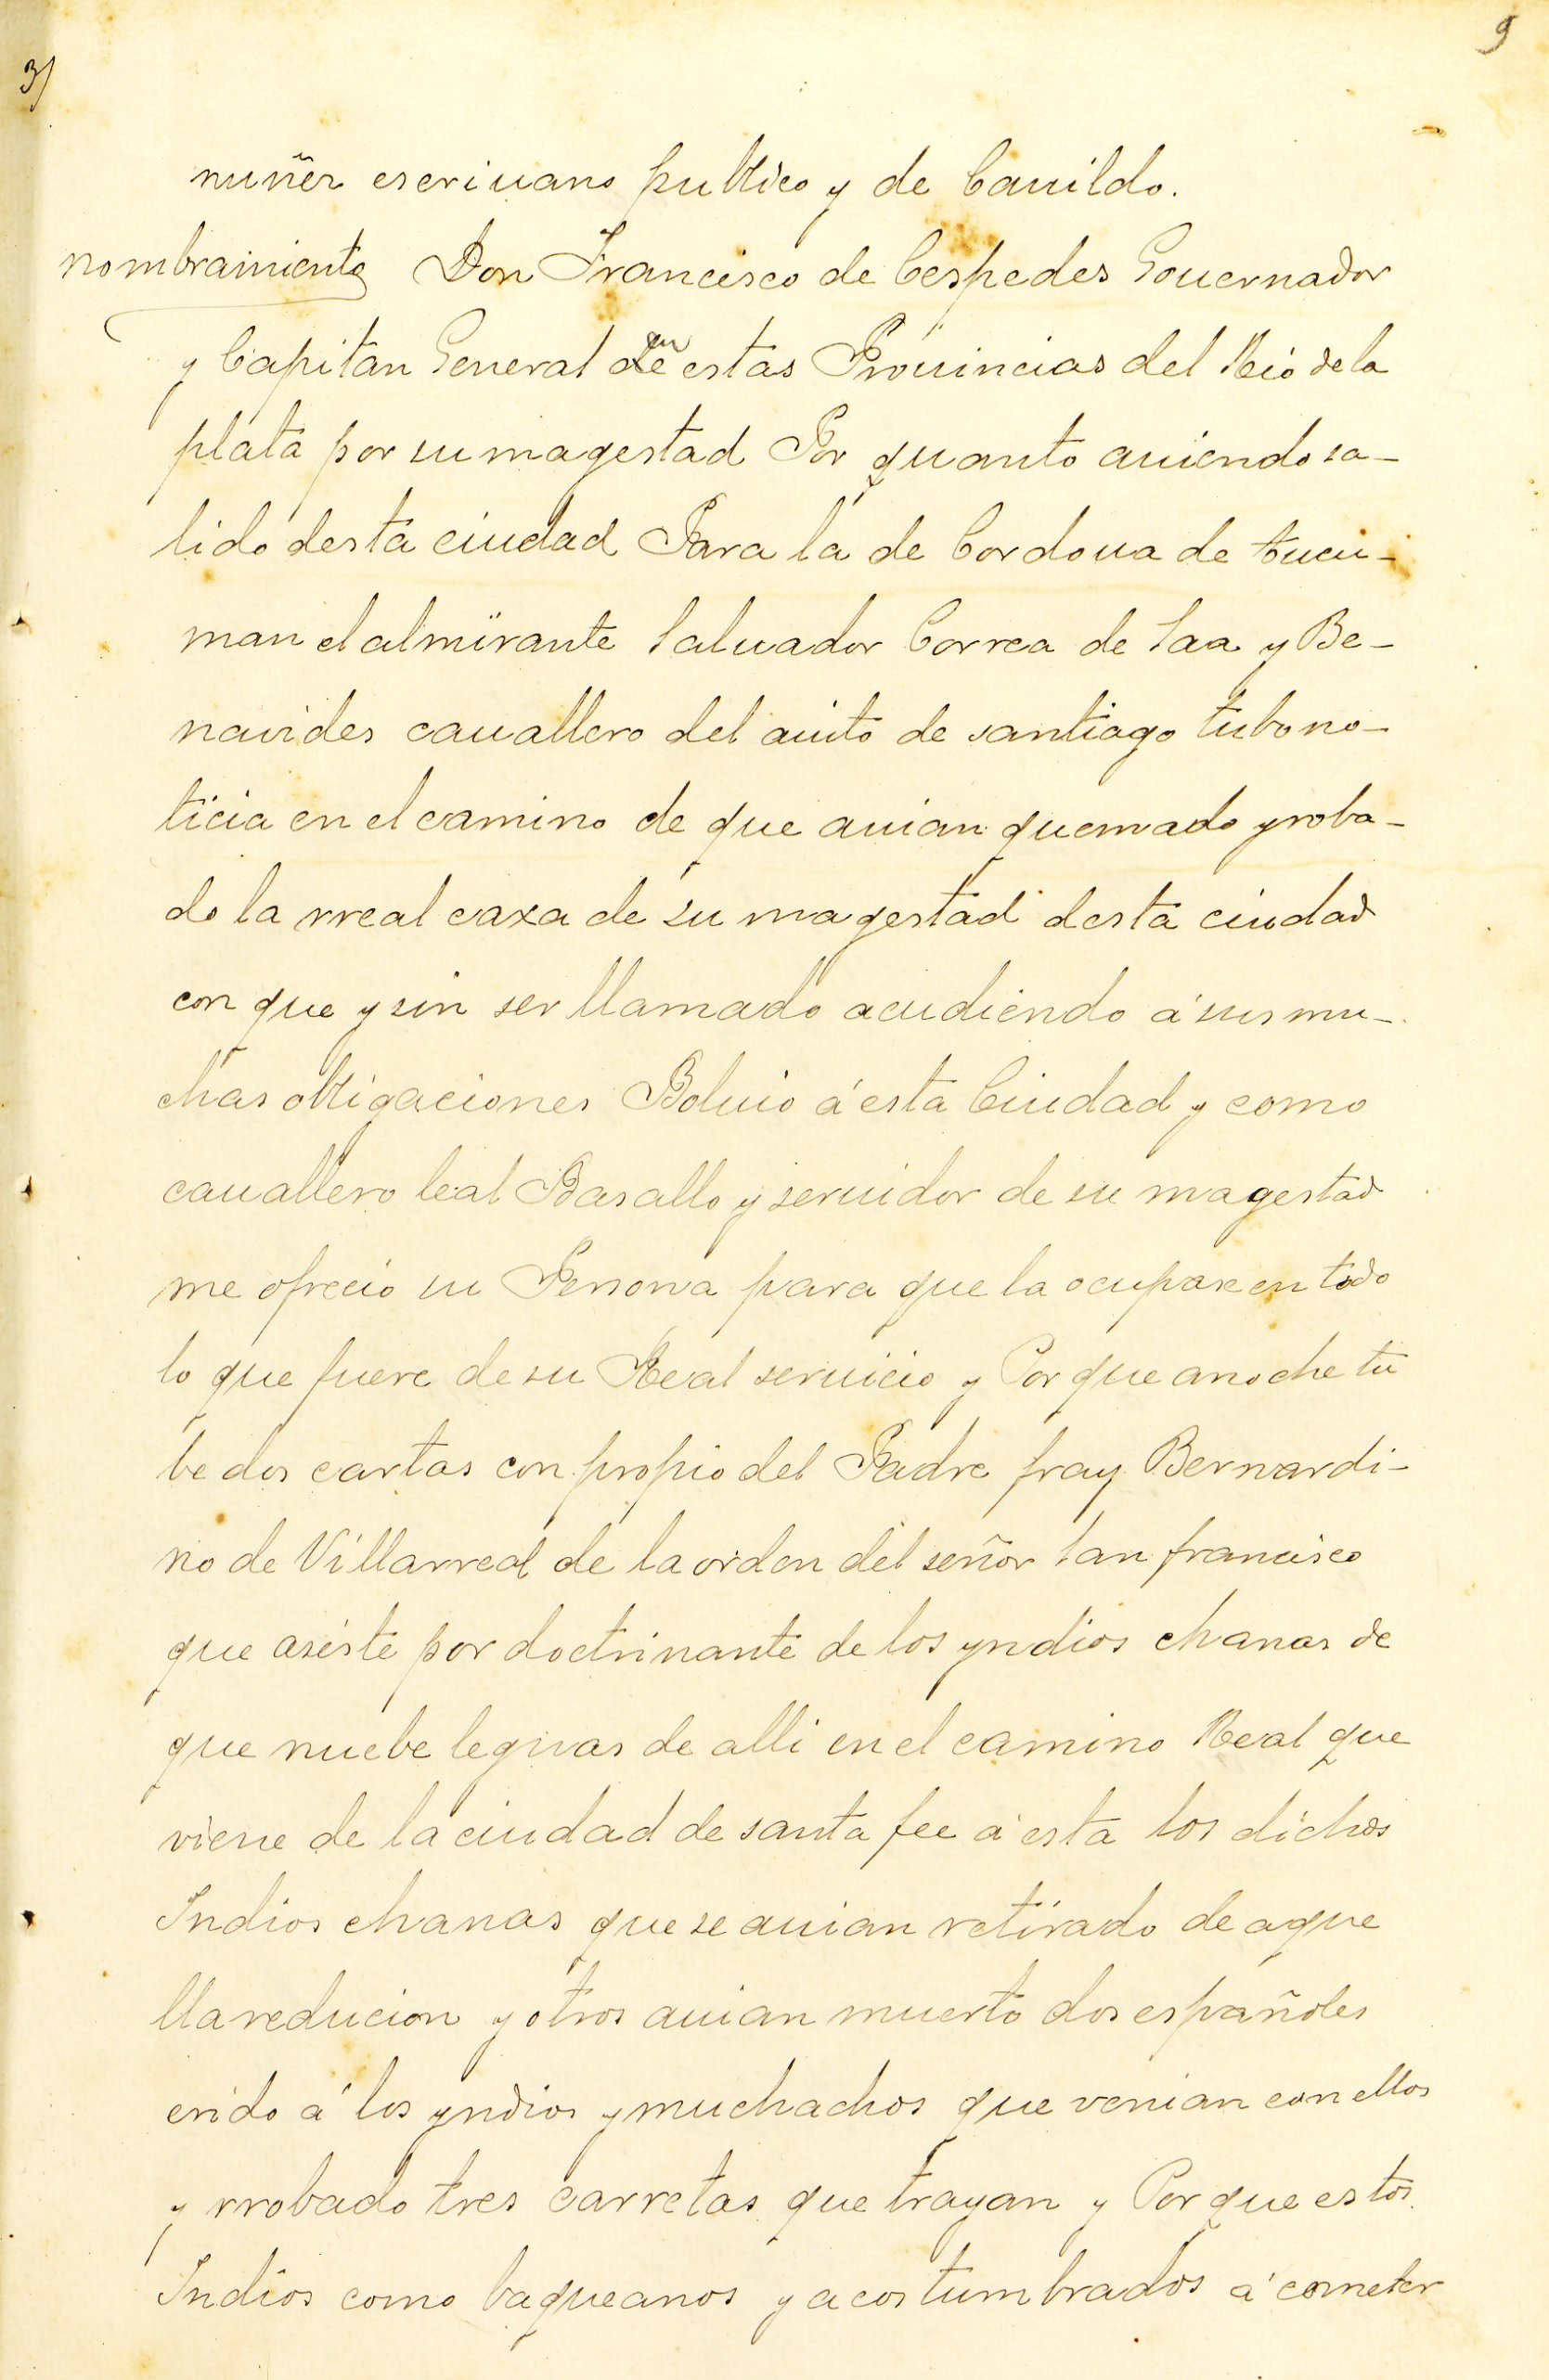 9
3/
nuñez escriuano publico y de Cauildo.
nombramiento Don Francisco de Cespedes Gouernador
y Capitan General en estas Prouincias del Rio de la
plata por su magestad Por quanto auiendo sa-
lido desta ciudad Para la de Cordoua de tucu-
man el almirante Saluador Correa de Saa y Be-
navides cauallero del auito de santiago tubo no-
ticia en el camino de que auian quemado y roba-
do la rreal caxa de su magestad desta ciudad
con que y sin ser llamado acudiendo á sus mu-
chas obligaciones Boluio á esta Ciudad y como
cauallero leal Basallo y seruidor de su magestad
me ofrecio su Persona para que la ocupase en todo
lo que fuere de su Real seruicio y Por que anoche tu
be dos cartas con propio del Padre fray Bernardi-
no de Villarreal de la orden del señor San francisco
que asiste por doctrinante de los yndios chanas de
que nuebe leguas de alli en el camino Real que
viene de la ciudad de santa fee á esta los dichos
Indios chanas que se auian retirado de aque
lla reducion y otros auian muerto dos españoles
erido á los yndios y muchachos que venian con ellos
y rrobado tres carretas que trayan y Por que estos
Indios como baqueanos y acostumbrados á cometer